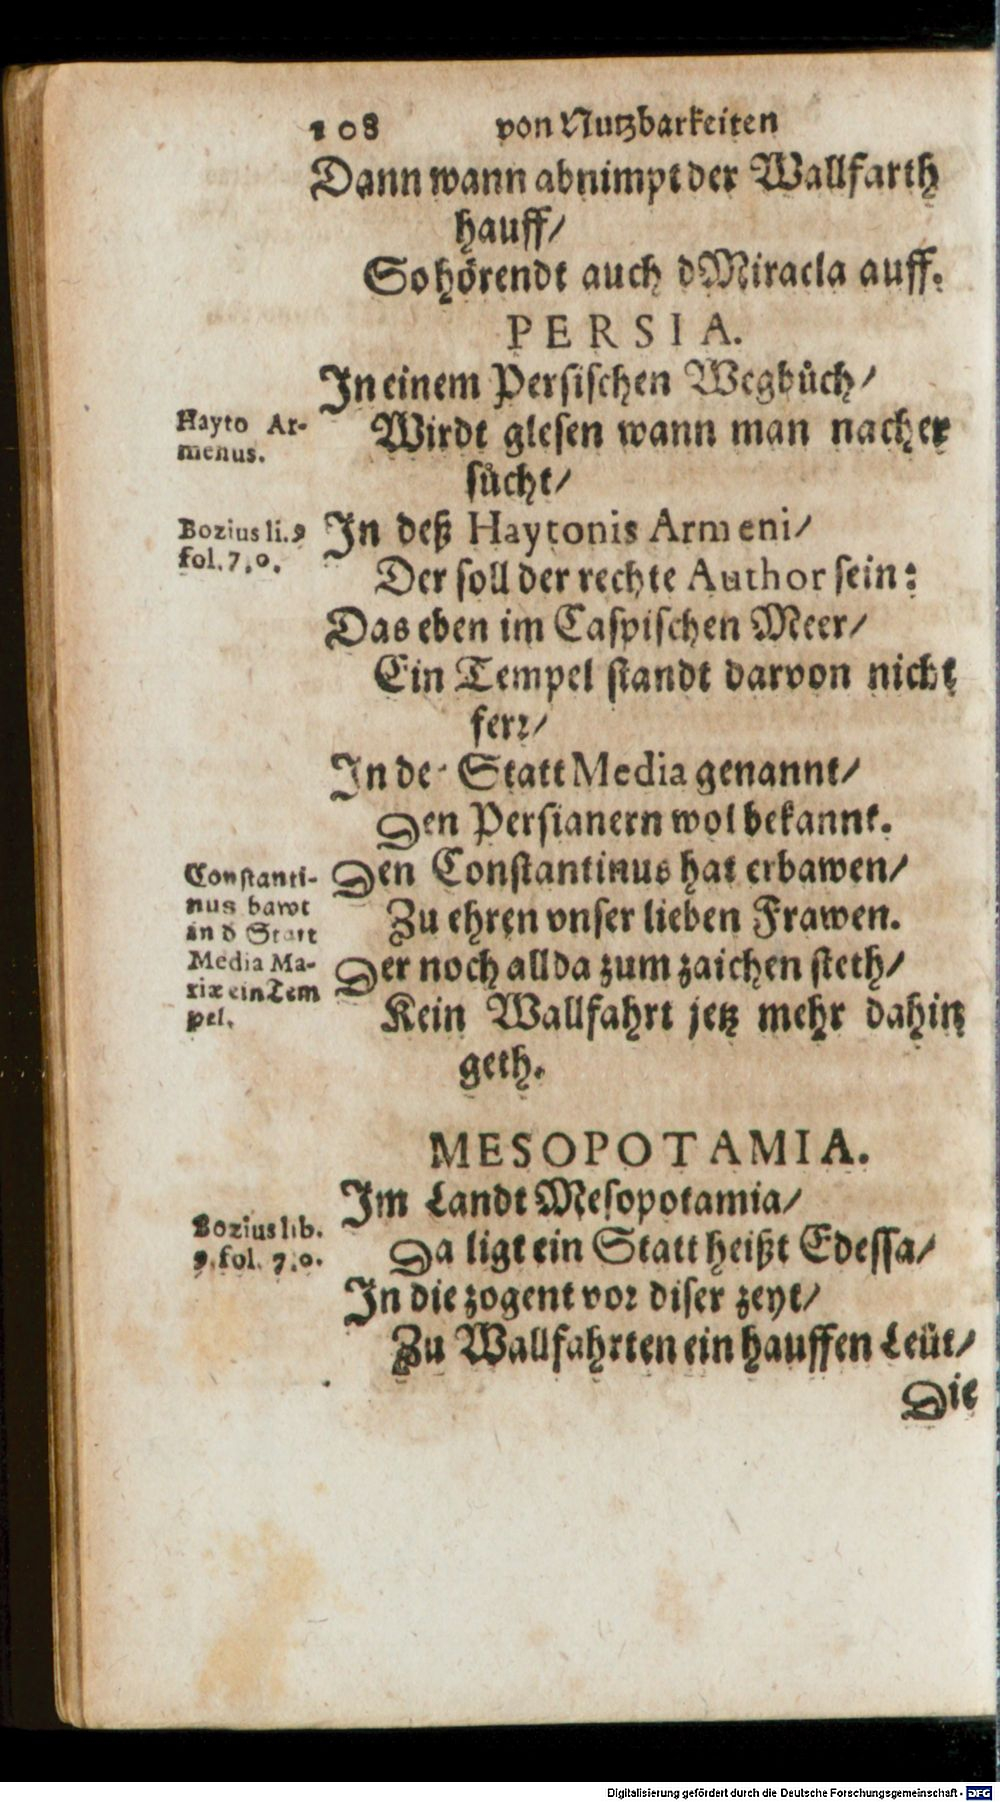 108 von Nutzbarkeiten
Dann wann abnimpt der Wallfarth
hauff/
So hörendt auch d Miracla auff.
PERSIA.
In einem Persischen Wegbuͦch/
Hayto Ar-
menus.
Wirdt glesen wann man nacher
suͦcht/
Bozius li. 9
fol. 7.0.
In deß Haytonis Armeni/
Der soll der rechte Author sein:
Das eben im Caspischen Meer/
Ein Tempel standt darvon nicht
ferr/
In der Statt Media genannt/
Den Persianern wol bekannt.
Constanti-
nus bawt
in d Statt
Media Ma-
riæ ein Tem
pel.
Den Constantinus hat erbawen/
Zu ehren vnser lieben Frawen.
Der noch allda zum zaichen steth/
Kein Wallfahrt jetz mehr dahin
geth.
MESOPOTAMIA.
Im Landt Mesopotamia/
Bozius lib.
9. fol. 7.0.
Da ligt ein Statt heißt Edessa/
In die zogent vor diser zeyt/
Zu Wallfahrten ein hauffen Leüt/
Die
Digitalisierung gefördert durch die Deutsche Forschungsgemeinschaft - DFG